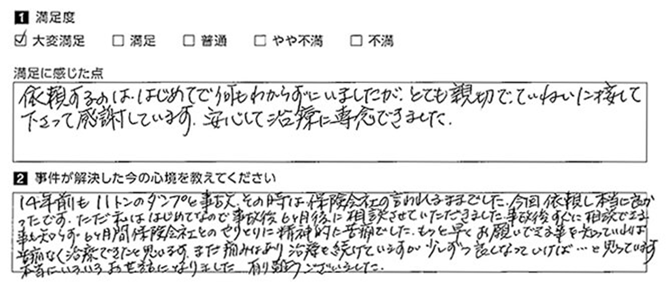 1 満足度
☑ 大変満足 □ 満足 □ 普通 □ やや不満 □ 不満
満足に感じた点
依頼するのは、はじめてで何もわからずにいましたが、とても親切で、ていねいに接して
下さって感謝しています。安心して治療に専念できました。
2 事件が解決した今の心境を教えてください
14年前も11トンのダンプと事故、その時は保険会社の言われるままでした。今回依頼し本当に良か
ったです。ただ私ははじめてなので事故後6ヶ月後に相談させていただきました。事故後すぐに相談できる
事も知らず、6ヶ月間保険会社とのやりとりに精神的に苦痛でした。もっと早くお願いできる事を知っていれば
苦痛なく治療できたと思います。まだ痛みはあり治療を続けていますが少しずつ良くなっていけば…と思っています
本当にいろいろお世話になりました。有り難うございました。